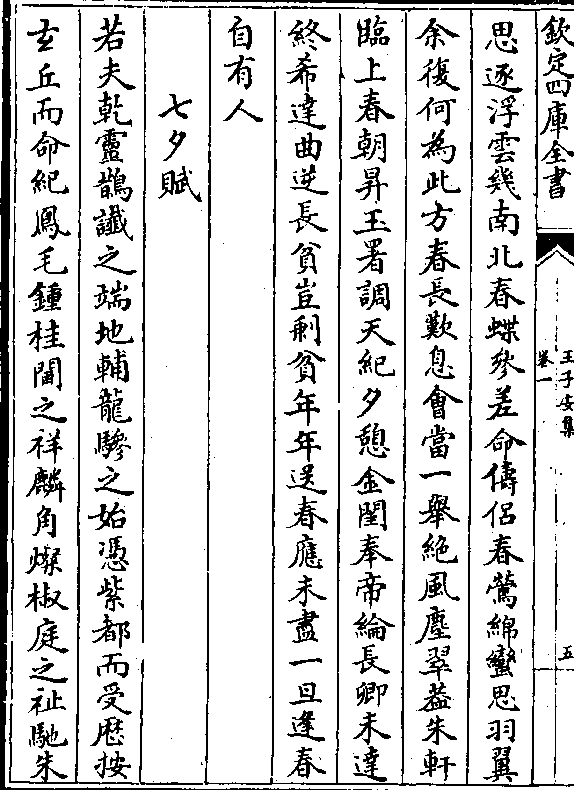 欽定四庫全書
王子安集
卷一
五
思逐浮雲幾南北春蝶參差命儔侶春鶯綿蠻思羽翼
余復何為此方春長歎息會當一舉絶風塵翠葢朱軒
臨上春朝昇玉署調天紀夕憩金閨奉帝綸長卿未達
終希達曲逆長貧豈剰貧年年送春應未盡一旦逢春
自有人
七夕賦
若夫乾靈鵲讖之端地輔龍驂之始憑紫都而受厯按
玄丘而命紀鳳毛鍾桂閫之祥麟角燦椒庭之祉馳朱